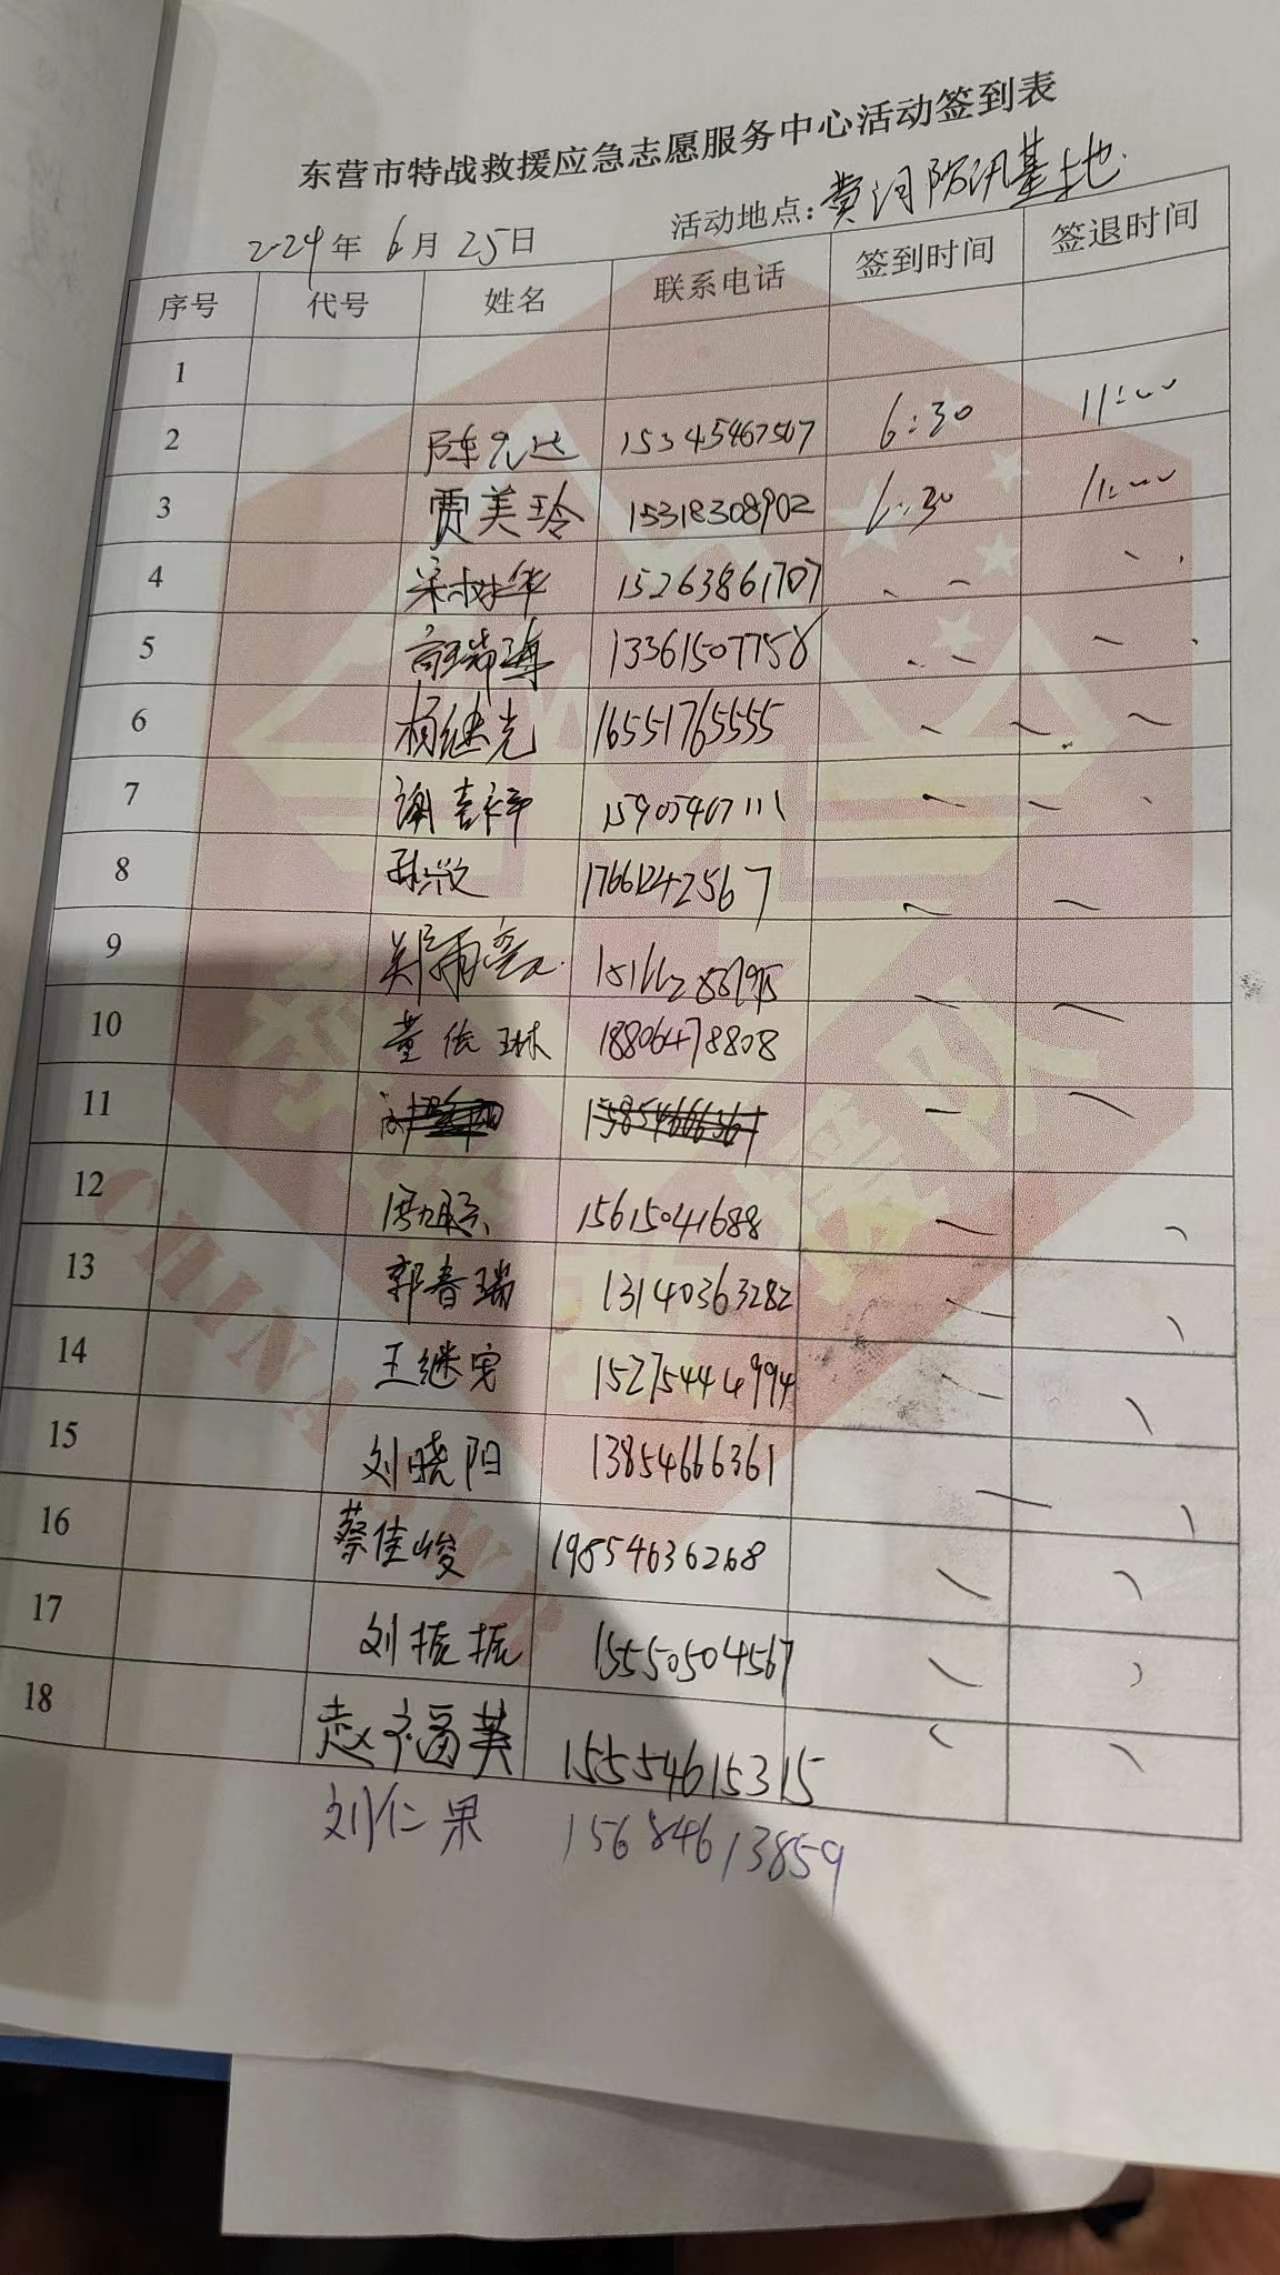 东营市特战救援应急志愿服务中心活动签到表
2024年 6月 25日 活动地点:黄河防汛基地
序号 代号 姓名 联系电话 签到时间 签退时间
1
2 15345467507 6:30 11:00
3 贾美玲 15318308902 6:30 11:00
4 15263861707
5 13361507758
6 杨继光 16551765555
7 谢吉祥 15905467111
8 17661242567
9 郑雨
10 董依琳 18806478808
11
12 15615041688
13 郭春瑞 13140363282
14 王继宪 15275444994
15 刘晓阳 13854666361
16 蔡佳峻 19854636268
17 刘振振 15550504567
18 赵福英 15554615315
刘仁果 15684613859
CHINA